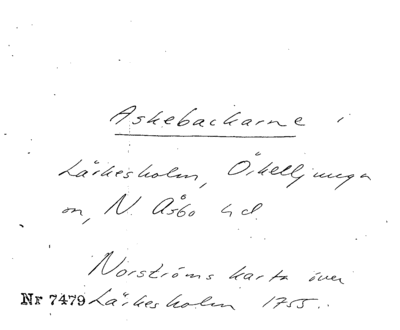 Askebackarne i
Lärkesholm, Örkelljunga
sn, N. Åsbo hd.
Norströms karta över
Nr 7479 Lärkesholm 1755.